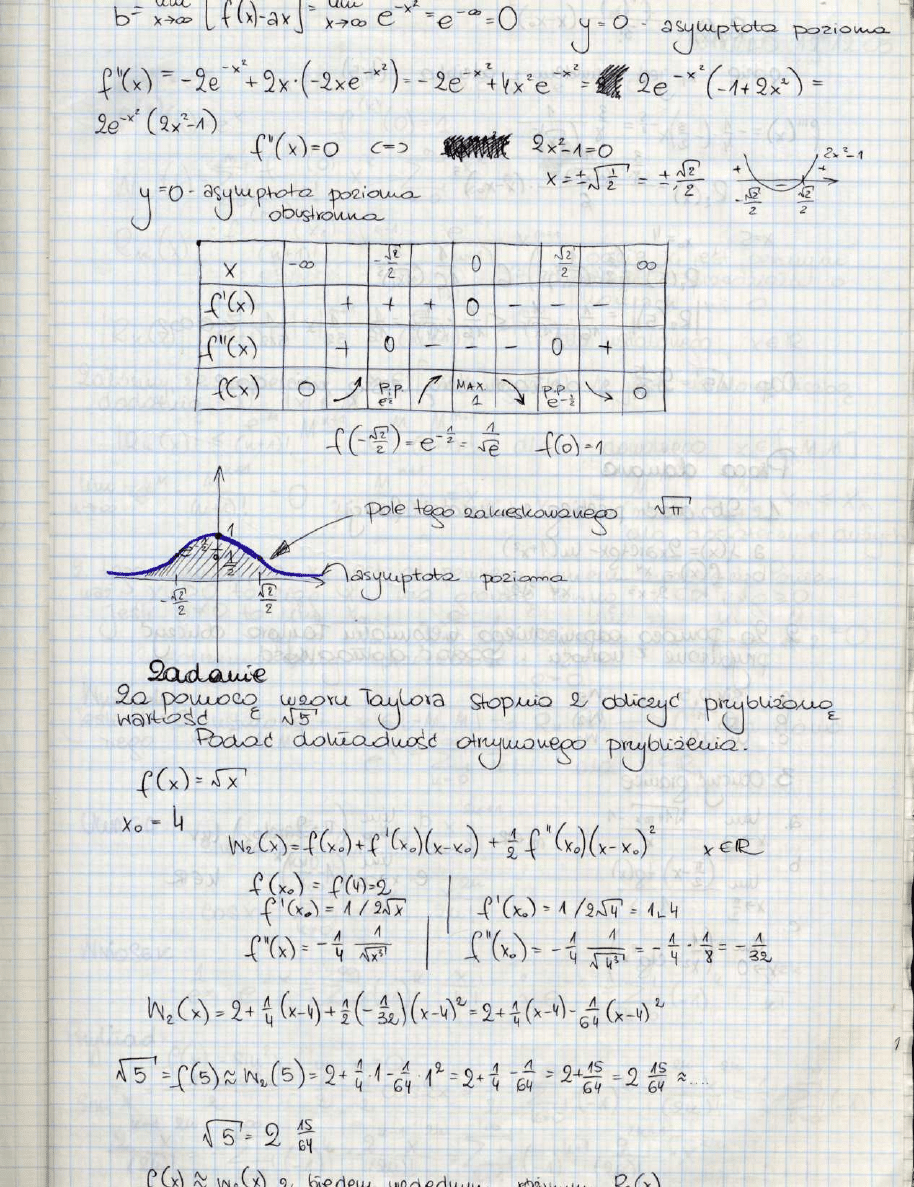 b= lim x→∞ [f(x)-ax] = lim x→∞ e^{-x²} = e^{-∞} = 0   y=0 - asymptota pozioma
f''(x) = -2e^{-x²} + 2x·(-2xe^{-x²}) = -2e^{-x²} + 4x²e^{-x²} = 2e^{-x²}(-1+2x²) =
2e^{-x²}(2x²-1)
f''(x)=0 <=> 2x²-1=0
x = ±√(1/2) = ±√2/2
2x²-1
+ - +
-√2/2 √2/2
y=0 - asymptota pozioma
obustronna
x | -∞ | | -√2/2 | | 0 | | √2/2 | | ∞
f'(x) | | + | + | + | 0 | - | - | - |
f''(x) | | + | 0 | - | - | - | 0 | + |
f(x) | 0 | ⤴ | p.p. | ↗ | MAX 1 | ↘ | p.p. e^{-1/2} | ↘ | 0
f(-√2/2) = e^{-1/2} = 1/√e   f(0)=1
pole tego zakreskowanego √π
1
asymptota pozioma
-√2/2 √2/2
Zadanie
Za pomocą wzoru Taylora stopnia 2 obliczyć przybliżoną
wartość √5
Podać dokładność otrzymanego przybliżenia.
f(x) = √x
x₀ = 4
W₂(x) = f(x₀) + f'(x₀)(x-x₀) + 1/2 f''(x₀)(x-x₀)²   x∈R
f(x₀) = f(4)=2
f'(x₀) = 1/2√x | f'(x₀) = 1/2√4 = 1/4
f''(x) = -1/4 1/√x³ | f''(x₀) = -1/4 1/√4³ = -1/4 · 1/8 = -1/32
W₂(x) = 2 + 1/4(x-4) + 1/2(-1/32)(x-4)² = 2 + 1/4(x-4) - 1/64(x-4)²
√5 = f(5) ≈ W₂(5) = 2 + 1/4·1 - 1/64·1² = 2 + 1/4 - 1/64 = 2 + 15/64 = 2 15/64 ≈ ....
√5 = 2 15/64
f(x) ≈ W₂(x) z błędem